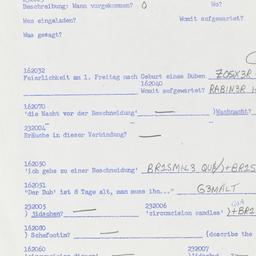 Beschreibung: Wann vorgekommen? O Wo?
Was eingeladen? Womit aufgewartet?
Was gesagt?
162032
Feierlichkeit am 1. Freitag nach Geburt eines Buben
162040
Womit aufgewartet?
162070
'die Nacht vor der Beschneidung' — )Wachnacht?
232004
Bräuche in dieser Verbindung? —
162050
'ich gehe zu einer Beschneidung'
162051
"Der Bub' ist 8 Tage alt, man muss ihn..." G3MALT
232005 232006
) jidschen? — 'circumcision candles'
162080
) Schefootim? — (describe the
162060 232007